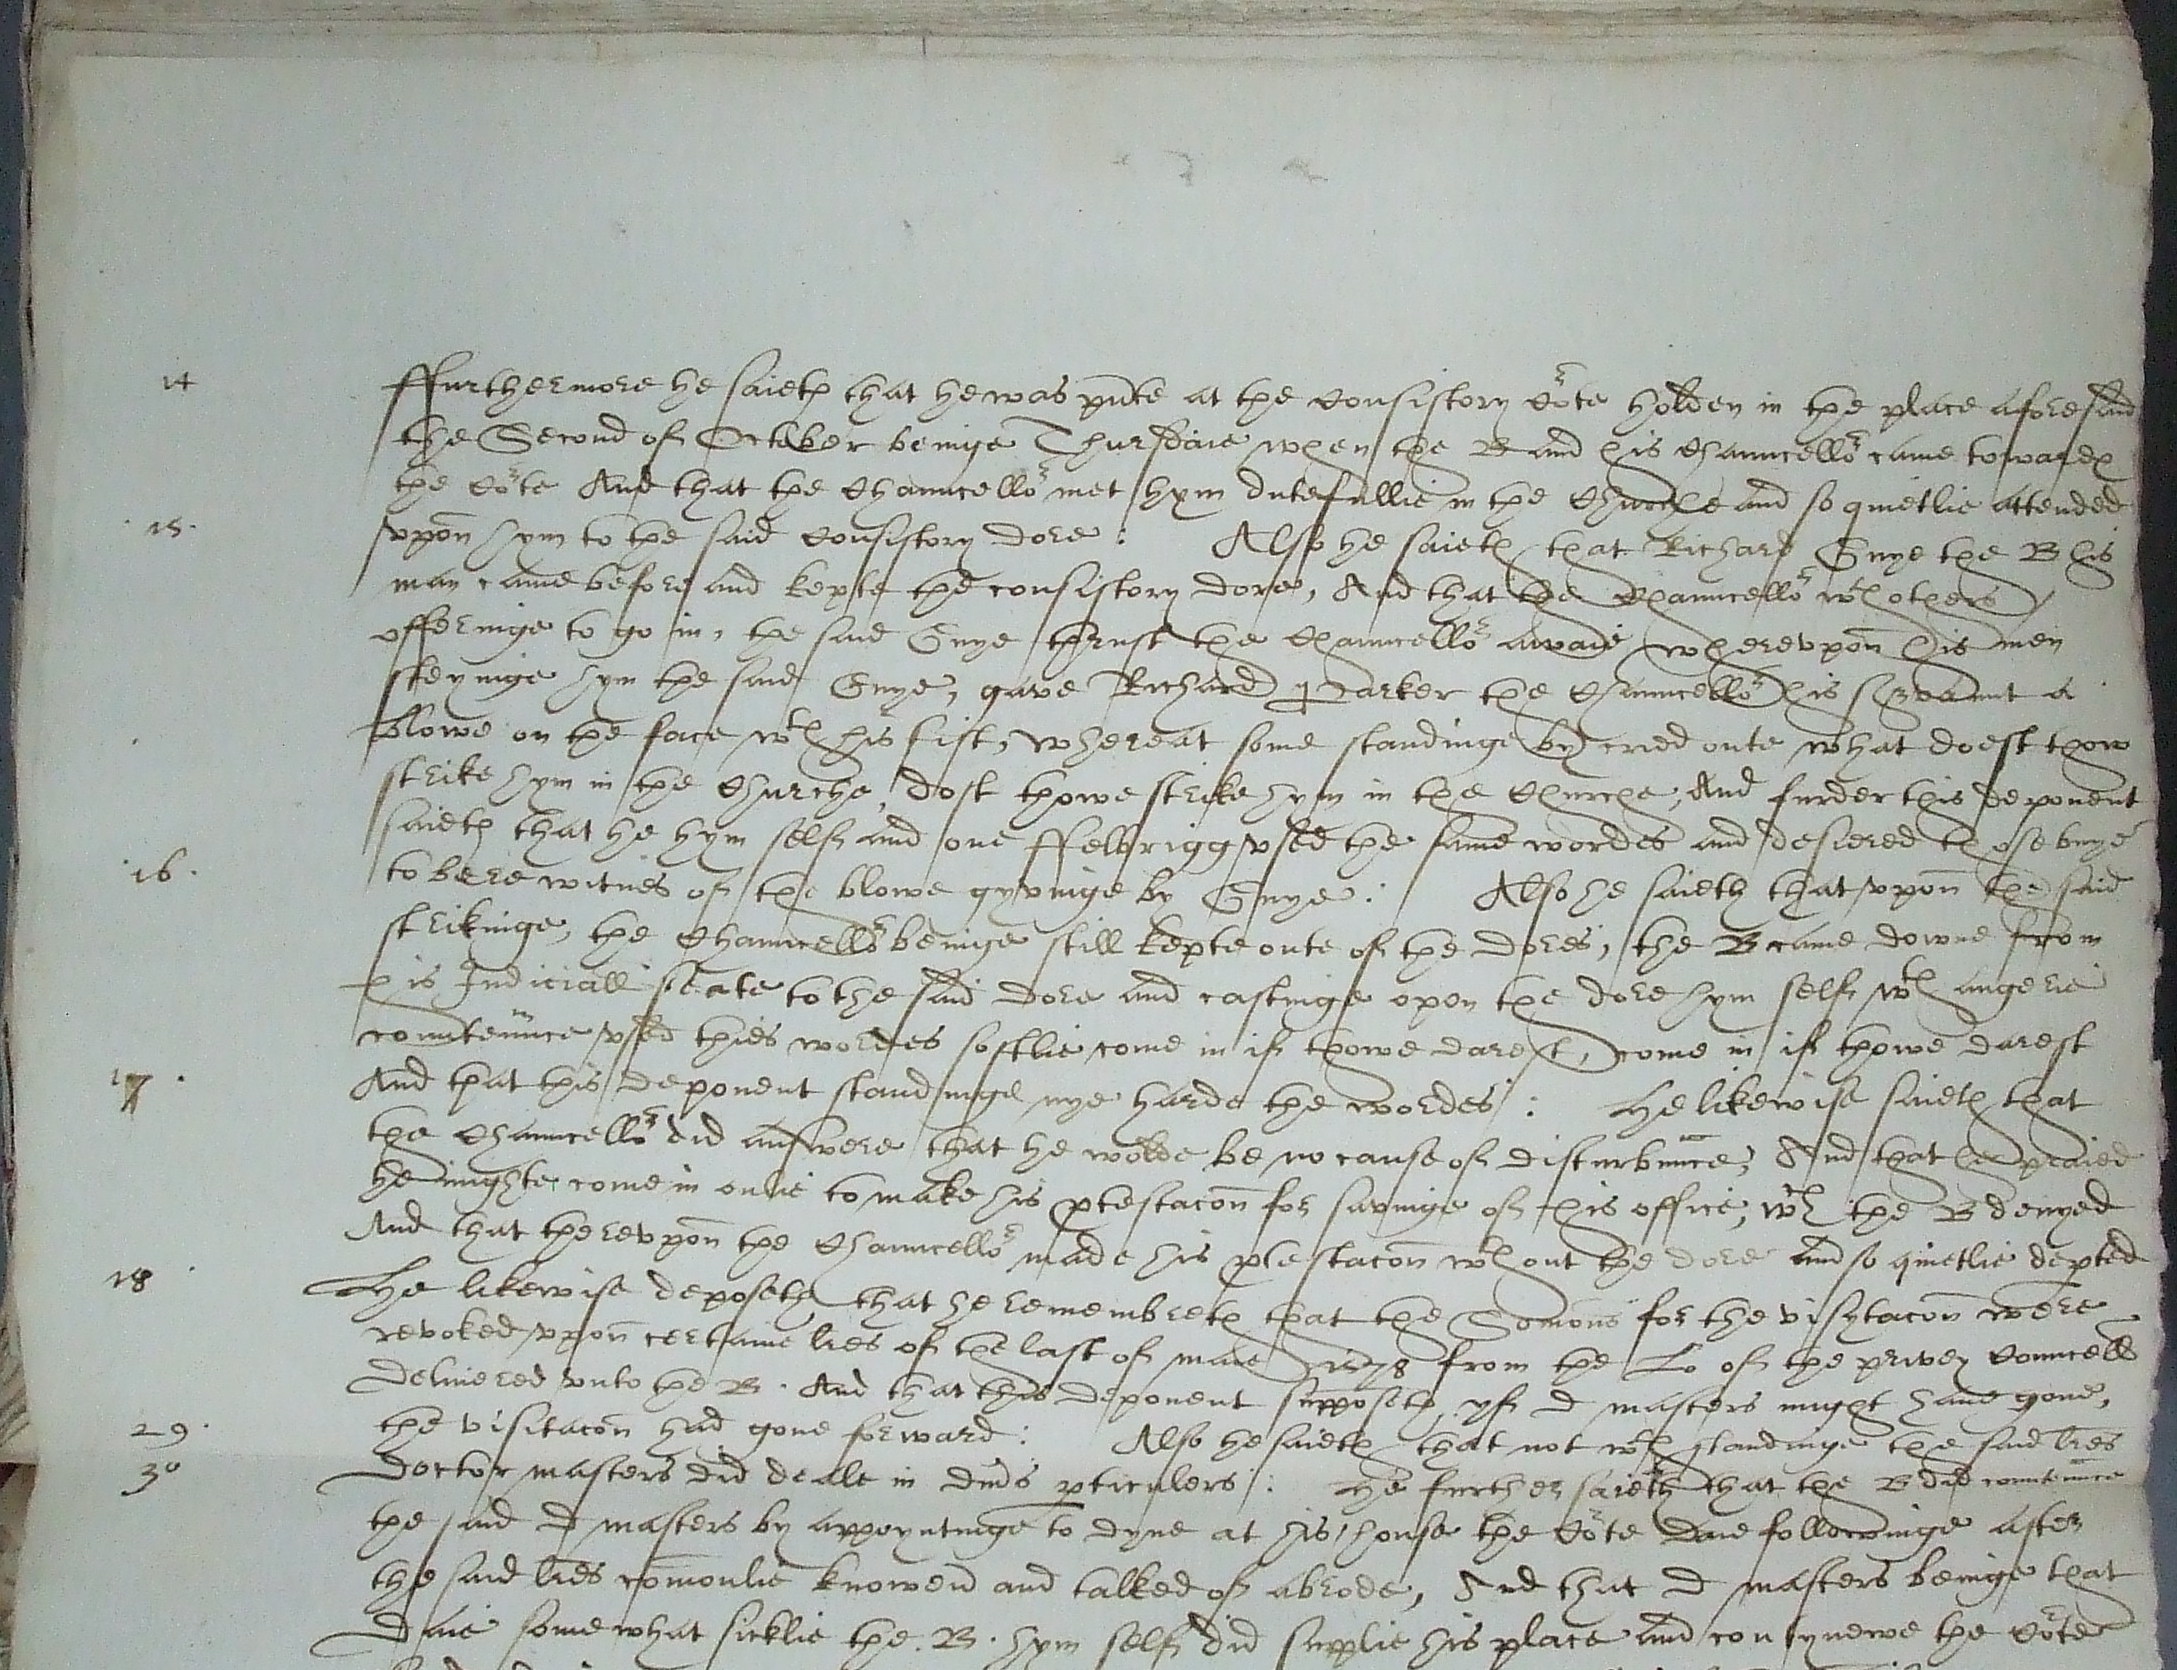 14 ffurthermore he saieth that he was pnte at the Consistory Cote holden in the place aforesaid
the Second of October beinge Thursdaie when the B and his Chauncellor came towards
the Cote And that the Chauncellor met hym dutefullie in the Churche and so quietlie attended
15. vppon hym to the said Consistory dore : Also he saieth that Richard Guye the B his
man came before and kepte the consistory dore, And that the Chauncellor wth others
offeringe to go in, the said Guye thrust the Chauncellor awaie wherevppon his men
steyinge hym the said Guye, gave Richard Parker the Chauncellor his servaunt a
blowe on the face wth his fist, whereat some standinge by cried oute what doest thow
strike hym in the Churche, dost thowe strike hym in the Churche, And furder this deponent
saieth that he hym self and one ffelbrigg vsed the same wordes and desiered those bnye
16. to bere witnes of the blowe gyvinge by Guye : Also he saieth that vppon the said
strikinge, the Chauncellor beinge still kepte oute of the dores, the B came downe from
his Judiciall seate to the said dore and castinge open the dore hym self wth angerie
countenunce vsed thies wordes softlie come in if thowe darest, come in if thowe darest
17. And that this deponent standinge nye harde the wordes : He likewise saieth that
the Chauncellor did answere that he wolde be no cause of disturbunce, And that he praied
he mighte come in onlie to make his ptestacon for savinge of his office, wch the B denyed
And that therevppon the Chauncellor made his ptestacon wthout the dore and so quietlie depted
18 He likewise deposeth that he remembreth that the Somons for the visytacon were
revoked vppon certaine lres of the last of maie 1578 from the Lo of the privey Councell
delivered vnto the B. And that this deponent supposeth, yf D masters might haue gone,
29. the visitacon had gone forward : Also he saieth that not wth standinge the said lres
30 Doctor masters did deale in diuis pticulers : He further saieth that the B did countenunce
the said D masters by appoyntinge to dyne at his house the Cote daie followinge after
the said lres comonlie knowen and talked of abrode, And that D masters beinge that
daie somewhat sicklie the .B. hym self did supplie his place and contynewe the Cote